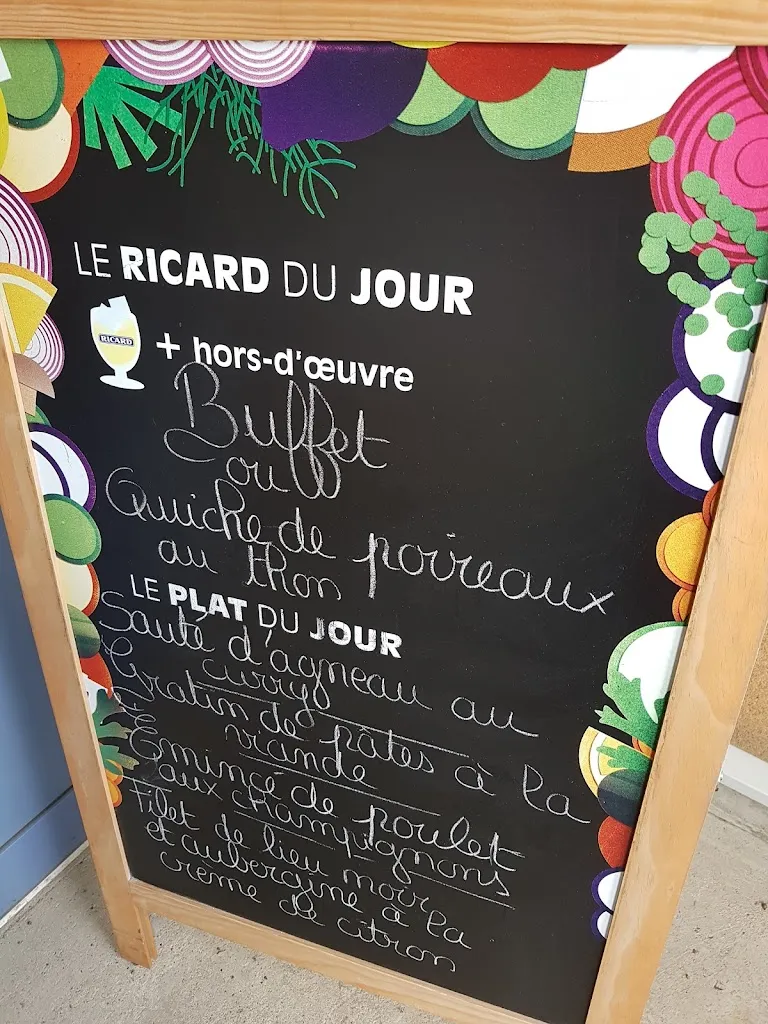 LE RICARD DU JOUR
RICARD
+ hors-d'œuvre
Buffet
ou
Quiche de poireaux
au thon
LE PLAT DU JOUR
Sauté d'agneau au
curry
Gratin de pâtes à la
viande
Emincé de poulet
aux champignons
Filet de lieu noir
et aubergine à la
crème de citron